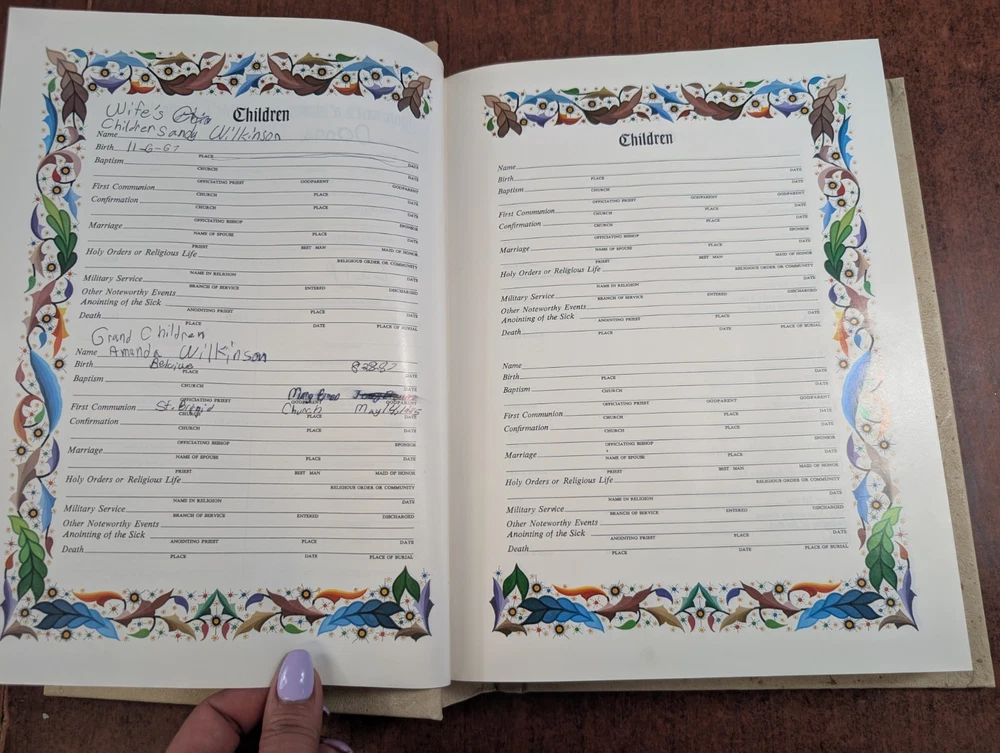 Wife's Children
Children Sandy Wilkinson
Name
Birth 11-6-67
PLACE DATE
Baptism
CHURCH DATE
OFFICIATING PRIEST GODPARENT GODPARENT
First Communion
CHURCH PLACE DATE
Confirmation
CHURCH PLACE DATE
OFFICIATING BISHOP SPONSOR
Marriage
NAME OF SPOUSE PLACE DATE
PRIEST BEST MAN MAID OF HONOR
Holy Orders or Religious Life
RELIGIOUS ORDER OR COMMUNITY
NAME IN RELIGION DATE
Military Service
BRANCH OF SERVICE ENTERED DISCHARGED
Other Noteworthy Events
Anointing of the Sick
ANOINTING PRIEST PLACE DATE
Death
PLACE DATE PLACE OF BURIAL
Grand Children
Name Amanda Wilkinson
Birth
PLACE DATE
Baptism
CHURCH DATE
OFFICIATING PRIEST GODPARENT GODPARENT
First Communion St. Brigid Church
CHURCH PLACE DATE
Confirmation
CHURCH PLACE DATE
OFFICIATING BISHOP SPONSOR
Marriage
NAME OF SPOUSE PLACE DATE
PRIEST BEST MAN MAID OF HONOR
Holy Orders or Religious Life
RELIGIOUS ORDER OR COMMUNITY
NAME IN RELIGION DATE
Military Service
BRANCH OF SERVICE ENTERED DISCHARGED
Other Noteworthy Events
Anointing of the Sick
ANOINTING PRIEST PLACE DATE
Death
PLACE DATE PLACE OF BURIAL
Children
Name
Birth
PLACE DATE
Baptism
CHURCH DATE
OFFICIATING PRIEST GODPARENT GODPARENT
First Communion
CHURCH PLACE DATE
Confirmation
CHURCH PLACE DATE
OFFICIATING BISHOP SPONSOR
Marriage
NAME OF SPOUSE PLACE DATE
PRIEST BEST MAN MAID OF HONOR
Holy Orders or Religious Life
RELIGIOUS ORDER OR COMMUNITY
NAME IN RELIGION DATE
Military Service
BRANCH OF SERVICE ENTERED DISCHARGED
Other Noteworthy Events
Anointing of the Sick
ANOINTING PRIEST PLACE DATE
Death
PLACE DATE PLACE OF BURIAL
Name
Birth
PLACE DATE
Baptism
CHURCH DATE
OFFICIATING PRIEST GODPARENT GODPARENT
First Communion
CHURCH PLACE DATE
Confirmation
CHURCH PLACE DATE
OFFICIATING BISHOP SPONSOR
Marriage
NAME OF SPOUSE PLACE DATE
PRIEST BEST MAN MAID OF HONOR
Holy Orders or Religious Life
RELIGIOUS ORDER OR COMMUNITY
NAME IN RELIGION DATE
Military Service
BRANCH OF SERVICE ENTERED DISCHARGED
Other Noteworthy Events
Anointing of the Sick
ANOINTING PRIEST PLACE DATE
Death
PLACE DATE PLACE OF BURIAL